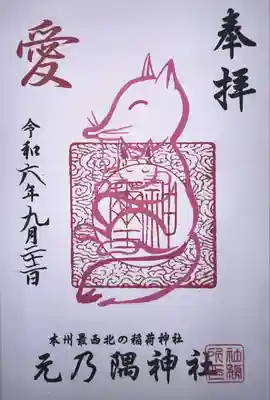 奉拝
愛
令和六年九月二十二日
本州最西北の稲荷神社
元乃隅神社